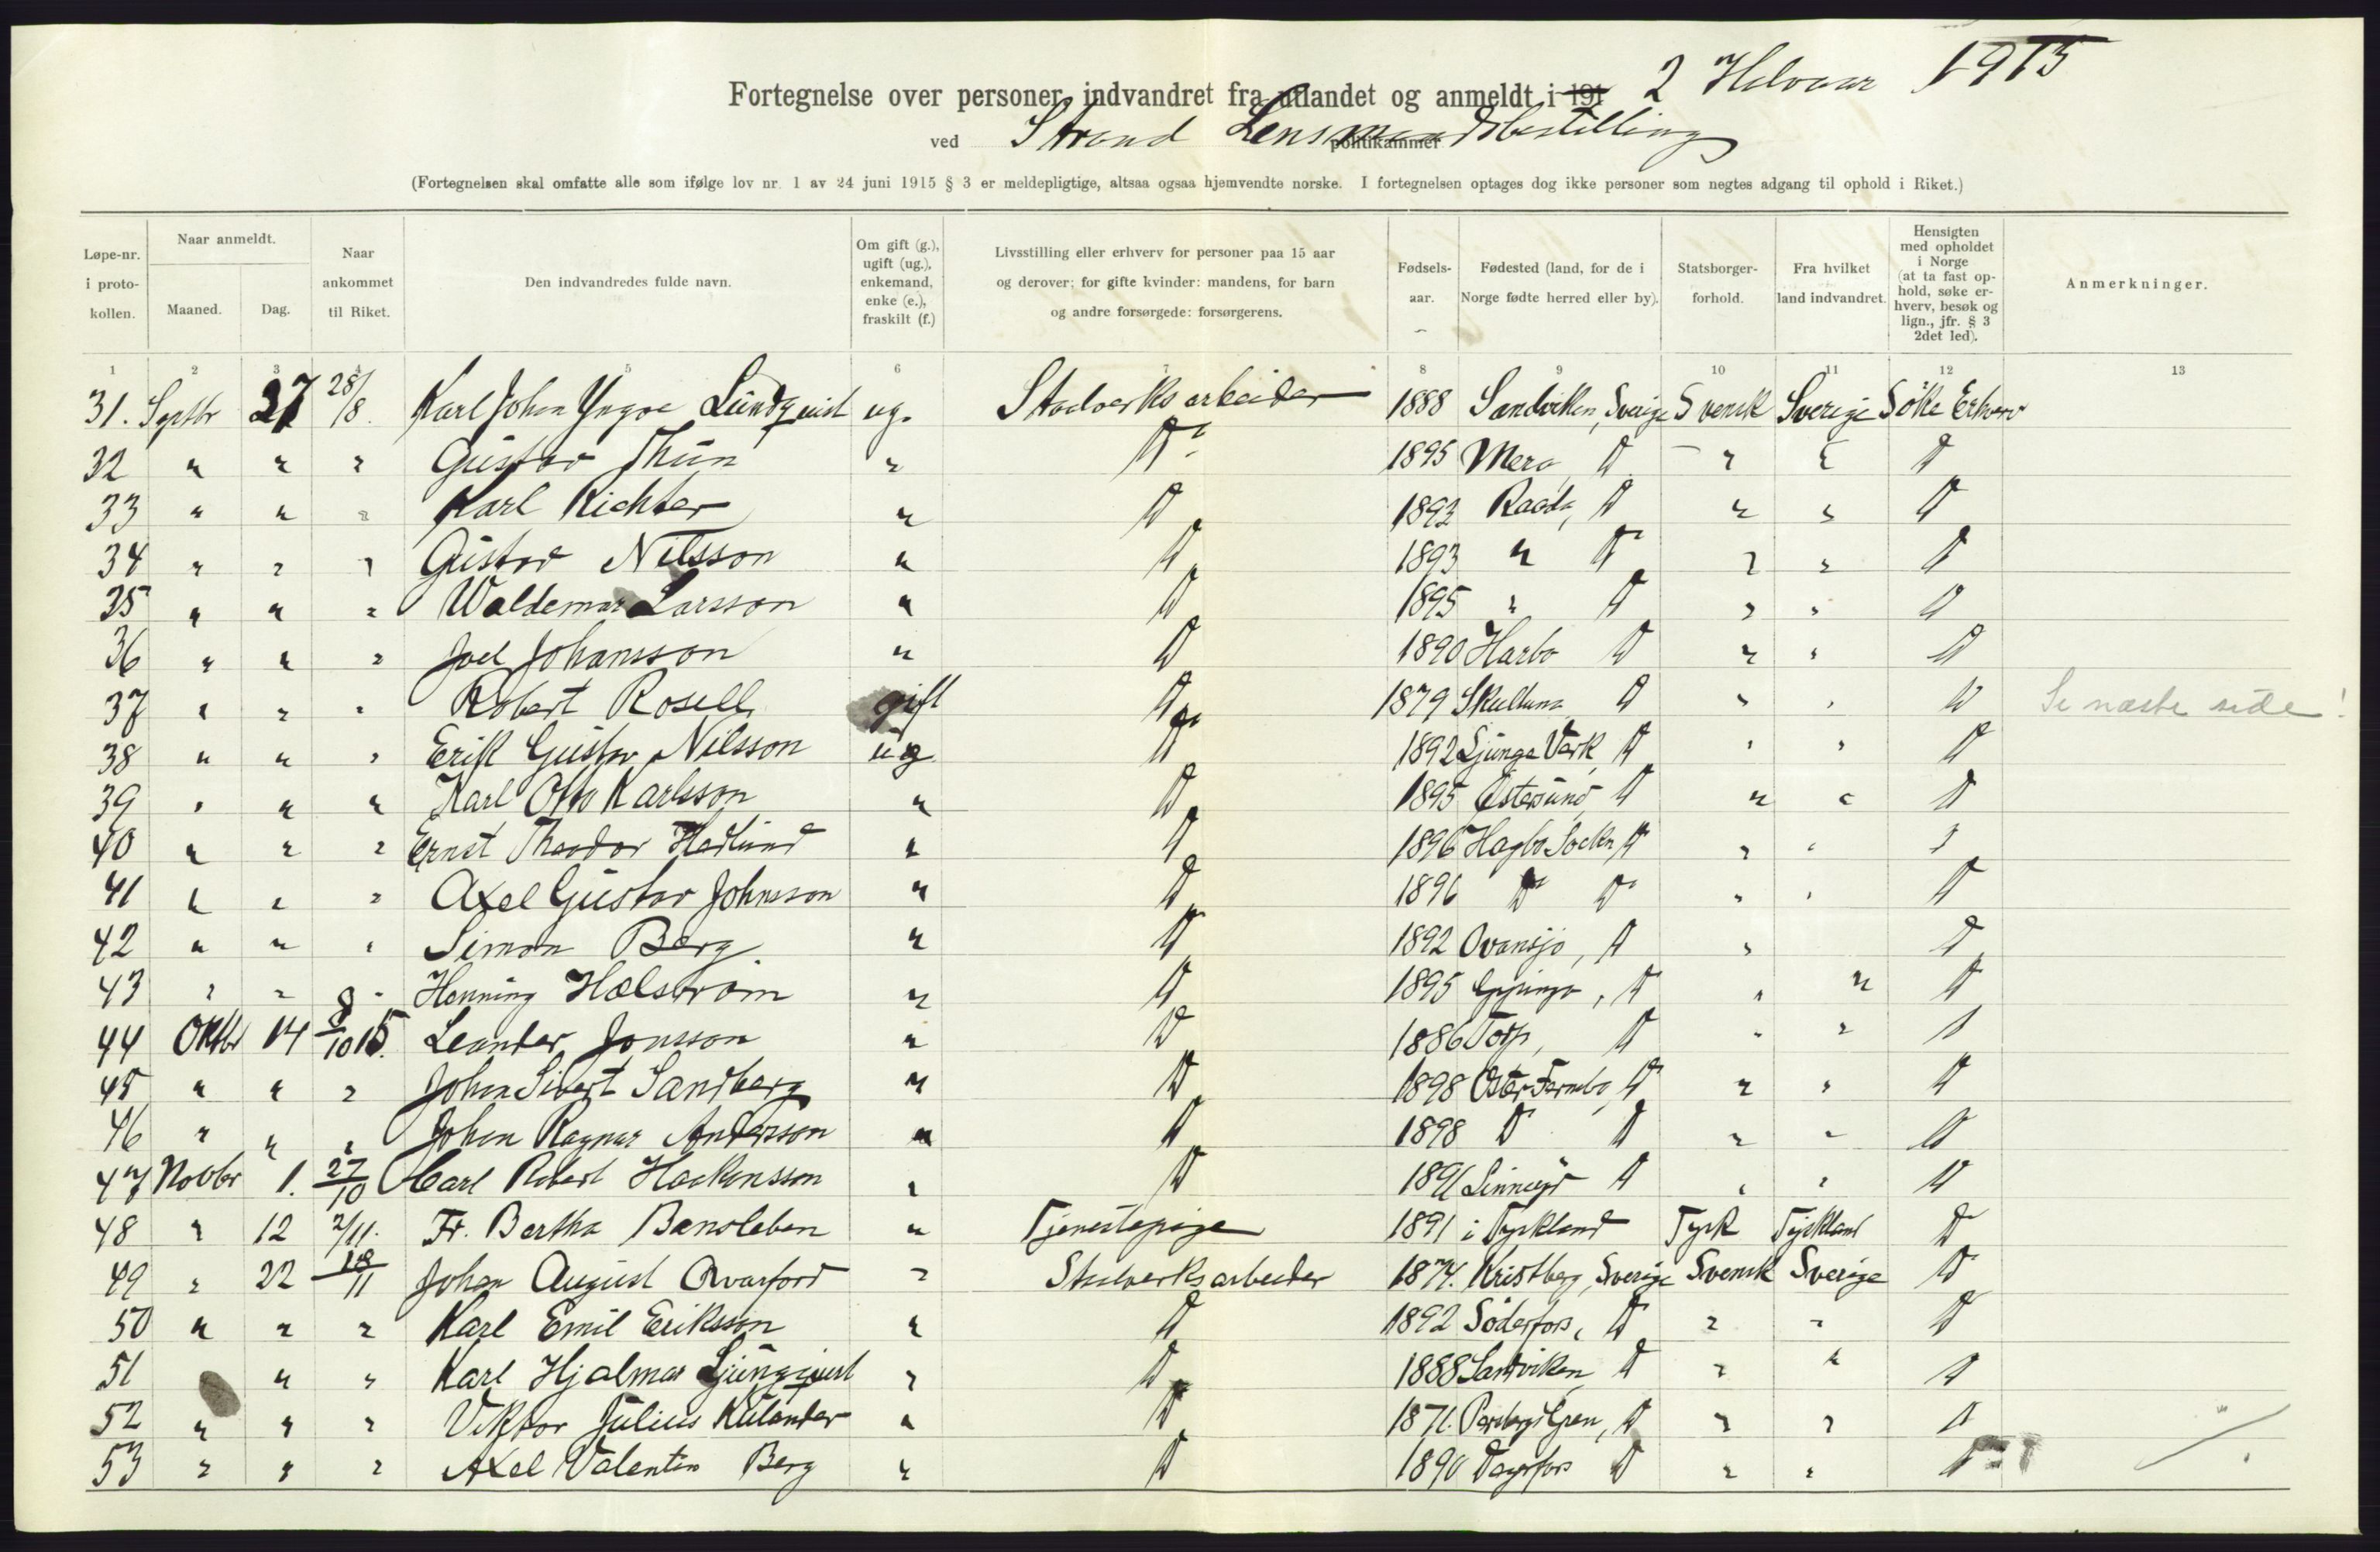 Fortegnelse over personer, indvandret fra utlandet og anmeldt i 191 2 Halvaar 1915
ved Strand Lensmandsbestilling politikammer
(Fortegnelsen skal omfatte alle som ifølge lov nr. 1 av 24 juni 1915 § 3 er meldepligtige, altsaa ogsaa hjemvendte norske. I fortegnelsen optages dog ikke personer som negtes adgang til ophold i Riket.)
Løpe-nr. i proto-kollen. Naar anmeldt. Maaned. Dag. Naar ankommet til Riket. Den indvandredes fulde navn. Om gift (g.), ugift (ug.), enkemand, enke (e.), fraskilt (f.) Livsstilling eller erhverv for personer paa 15 aar og derover; for gifte kvinder: mandens, for barn og andre forsørgede: forsørgerens. Fødsels-aar. Fødested (land, for de i Norge fødte herred eller by). Statsborger-forhold. Fra hvilket land indvandret. Hensigten med opholdet i Norge (at ta fast op-hold, søke er-hverv, besøk og lign., jfr. § 3 2det led). Anmerkninger.
1 2 3 4 5 6 7 8 9 10 11 12 13
31. Septbr 27 28/8. Karl Johan Yngve Lundquist ug. Staalverksarbeider 1888 Sandviken, Sverige Svensk Sverige Söke Erhverv
32 " " " Gustav Thun " D 1895 D " " D
33 " " " Karl Richter " D 1892 Raada, D " " D
34 " " " Gustav Nilsson " D 1893 " D " " D
35 " " " Waldemar Larsson " D 1895 " D " " D
36 " " " Joel Johansson " D 1890 Harbo D " " D
37 " " " Robert Rosell gift D 1879 Skultuna D " " D Se næste side!
38 " " " Erik Gustav Nilsson ug D 1892 Ljunga Värk, D " " D
39 " " " Karl Otto Karlsson " D 1895 Östersund, D " " D
40 " " " Ernst Theodor Hedlund " D 1896 Högbo Socken D " " "
41 " " " Axel Gustav Johnsson " D 1896 D D " " D
42 " " " Simon Berg " D 1892 Ovansjö, D " D
43 " " " Henning Hælström " D 1895 D " " D
44 Oktbr 14 8/10 15. Leander Jonsson " D 1886 Torp, D " " D
45 " " " Johan Sivert Sandberg " D 1898 Öster Fernebo, D " " D
46 " " " Johan Ragnar Andersson " D 1898 D D " " D
47 Novbr 1. 27/10 Carl Robert Haakansson " D 1891 D " " D
48 " 12 2/11. Fr. Bertha Bansleben " Tjenestepige 1891 i Tyskland Tysk Tyskland D
49 " 22 18/11 Johan August Qvarford " Staalverksarbeider 1874. Kristberg, Sverige Svensk Sverige D
50 " " " Karl Emil Eriksson " D 1892 Söderfors, D " " D
51 " " Karl Hjalmar Ljungquist " D 1888 Sandviken, D " " D
52 " " " Viktor Julius Kulander " D 1871. D " " D
53 " " " Axel Valentin Berg " D 1890 Degerfors D " " D